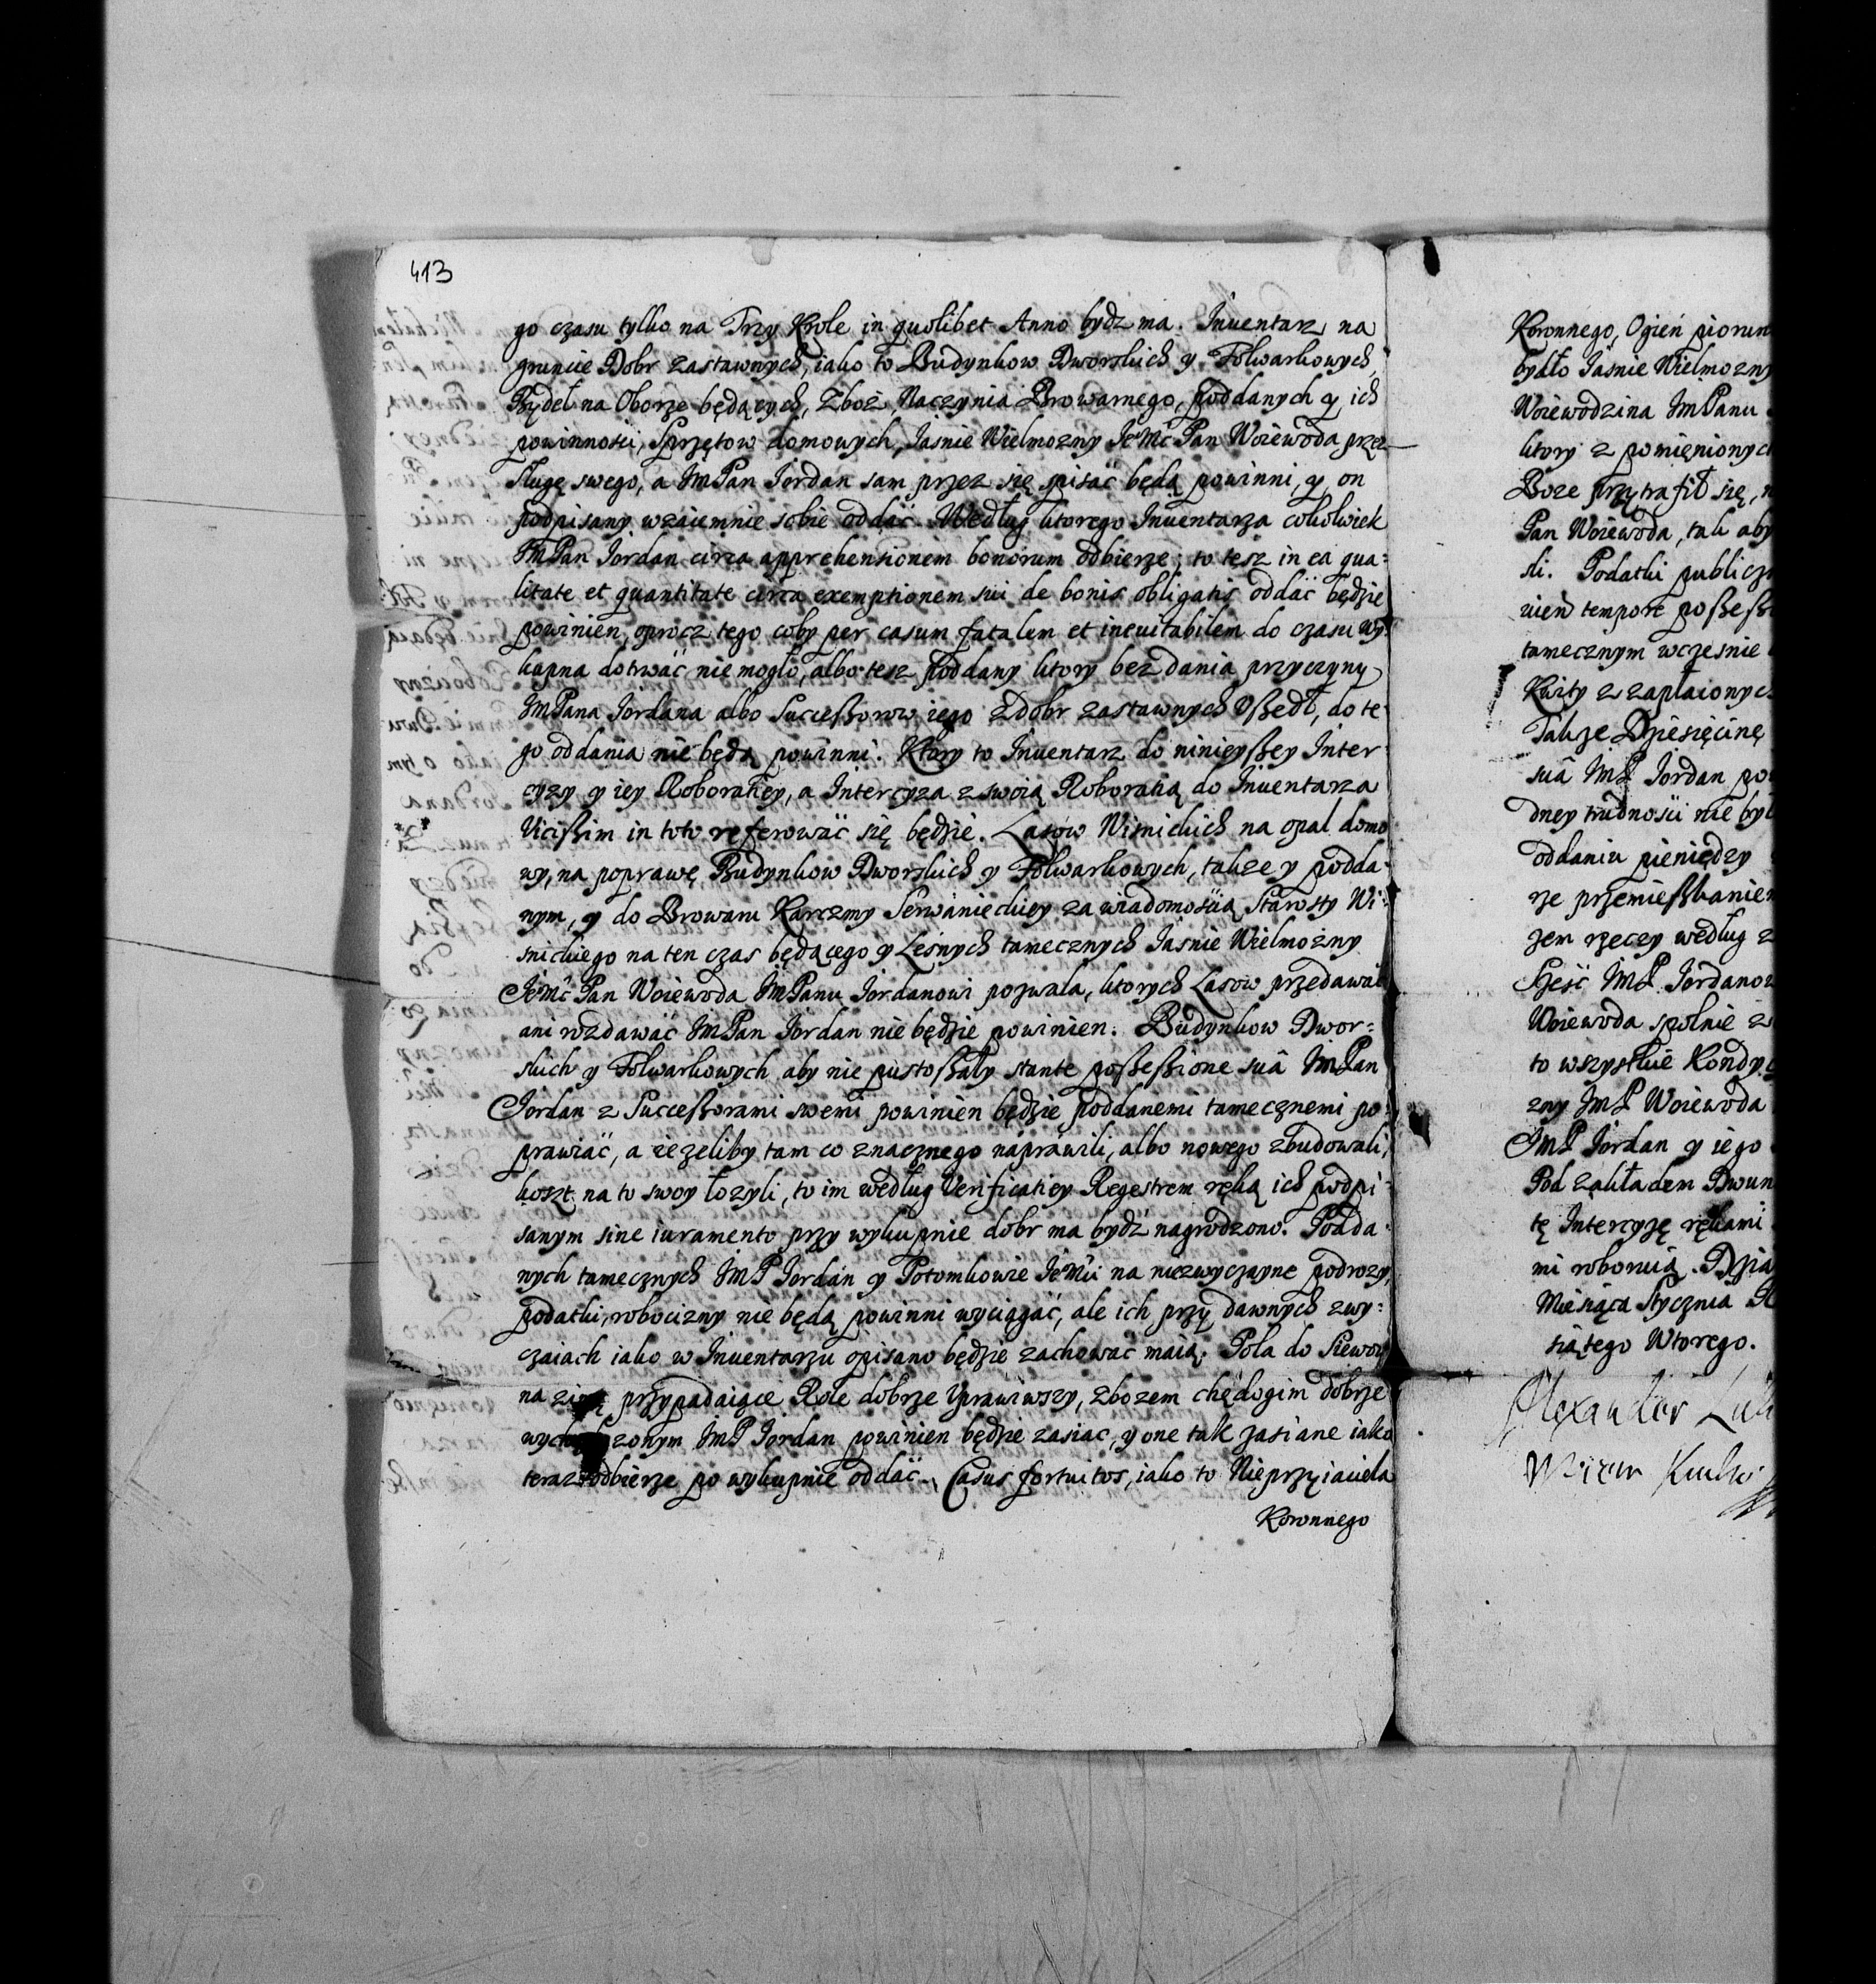 413
go czasu tylko na Trzy Krole in quolibet Anno bydz ma. Inuentarz na
gruncie Dobr zastawnych, iako to Budynkow Dworskich y Folwarkowych,
Bydeł na Oborze będących, Zboż, Naczynia Browarnego, poddanych y ich
powinności, Sprzętow domowych, Iasnie Wielmozny IeMć Pan Woiewoda przez
sługę swego, a ImPan Iordan sam przez się spisać będą powinni, y on
podpisany wzaiemnie sobie oddać. Według ktorego Inuentarza cokolwiek
ImPan Iordan circa apprehensionem bonorum odbierze; to tesz in ea qua-
litate et quantitate circa exemptionem sui de bonis obligatis oddać będzie
powinien, oprocz tego coby per casum fatalem et ineuitabilem do czasu wy-
kupna dotrwać nie mogło, albo tesz poddany ktory bez dania przyczyny
ImPana Iordana albo Successorow iego z dobr zastawnych Vszedł, do te-
go oddania nie będą powinni. Ktory to Inuentarz do ninieyszey Inter-
cyzy y iey Roboratiey, a Intercyza z swoią Roboratią do Inuentarza
Vicissim in toto referować się będzie. Lasow Wisnickich na opal domo
wy, na poprawę Budynkow Dworskich y Folwarkowych, takze y podda-
nym, y do Browaru Karczmy Serwanieckiey za wiadomością Starosty Wi-
snickiego na ten czas będącego y Leśnych tamecznych Iasnie Wielmożny
IeMć Pan Woiewoda ImPanu Iordanowi pozwala, ktorych Lasow przedawać
ani rozdawać ImPan Iordan nie będzie powinien. Budynkow Dwor-
skich y Folwarkowych aby nie pustoszały stante possessione suâ ImPan
Iordan z Successorami swemi powinien będzie poddanemi tamecznemi po-
prawiać, a iezeliby tam co znacznego naprawili, albo nowego zbudowali,
koszt na to swoy łozyli, to im według Verificatiey Regestrem ręką ich podpi-
sanym sine iuramento przy wykupnie dobr ma bydź nagrodzono. Podda-
nych tamecznych ImP Iordan y Potomkowie IeMći na niezwyczayne podrozy,
podatki, robocizny nie będą powinni wyciągać, ale ich przy dawnych zwy-
czaiach iako w Inuentarzu opisano będzie zachować maią. Pola do Siewow
na przypadaiące Role dobrze Vprawiwszy, zbozem chędogim dobrze
ImP Iordan powinien będzie zasiać, y one tak zasiane iako
teraz odbierze po wykupnie oddać. Casus fortuitos, iako to Nieprzyiaciela
Koronnego
Koronnego, Ogień piorun
bydło Iasnie Wielmozny
Woiewodzina ImPanu
ktory z pomienionych
Boze przytrafił się,
Pan Woiewoda, tak aby
sli. Podatki publiczn
nien tempore possess
tamecznym wczesnie
Kwity z zapłaionych
Takze Dziesięcinę
suâ ImP Iordan po
dney trudnosci nie by
oddaniu pieniędzy
rze przemieszkanie
zem rzeczy według z
Sześć ImP. Iordanow
Woiewoda spolnie z
to wszystkie Kondyc
zny ImP Woiewoda
ImP Iordan y iego
Pod zakładem Dwun
tę Intercyzę rękami
mi roboruią. Dzia
Miesiąca Stycznia R
siątego Wtorego.
Alexander Lub